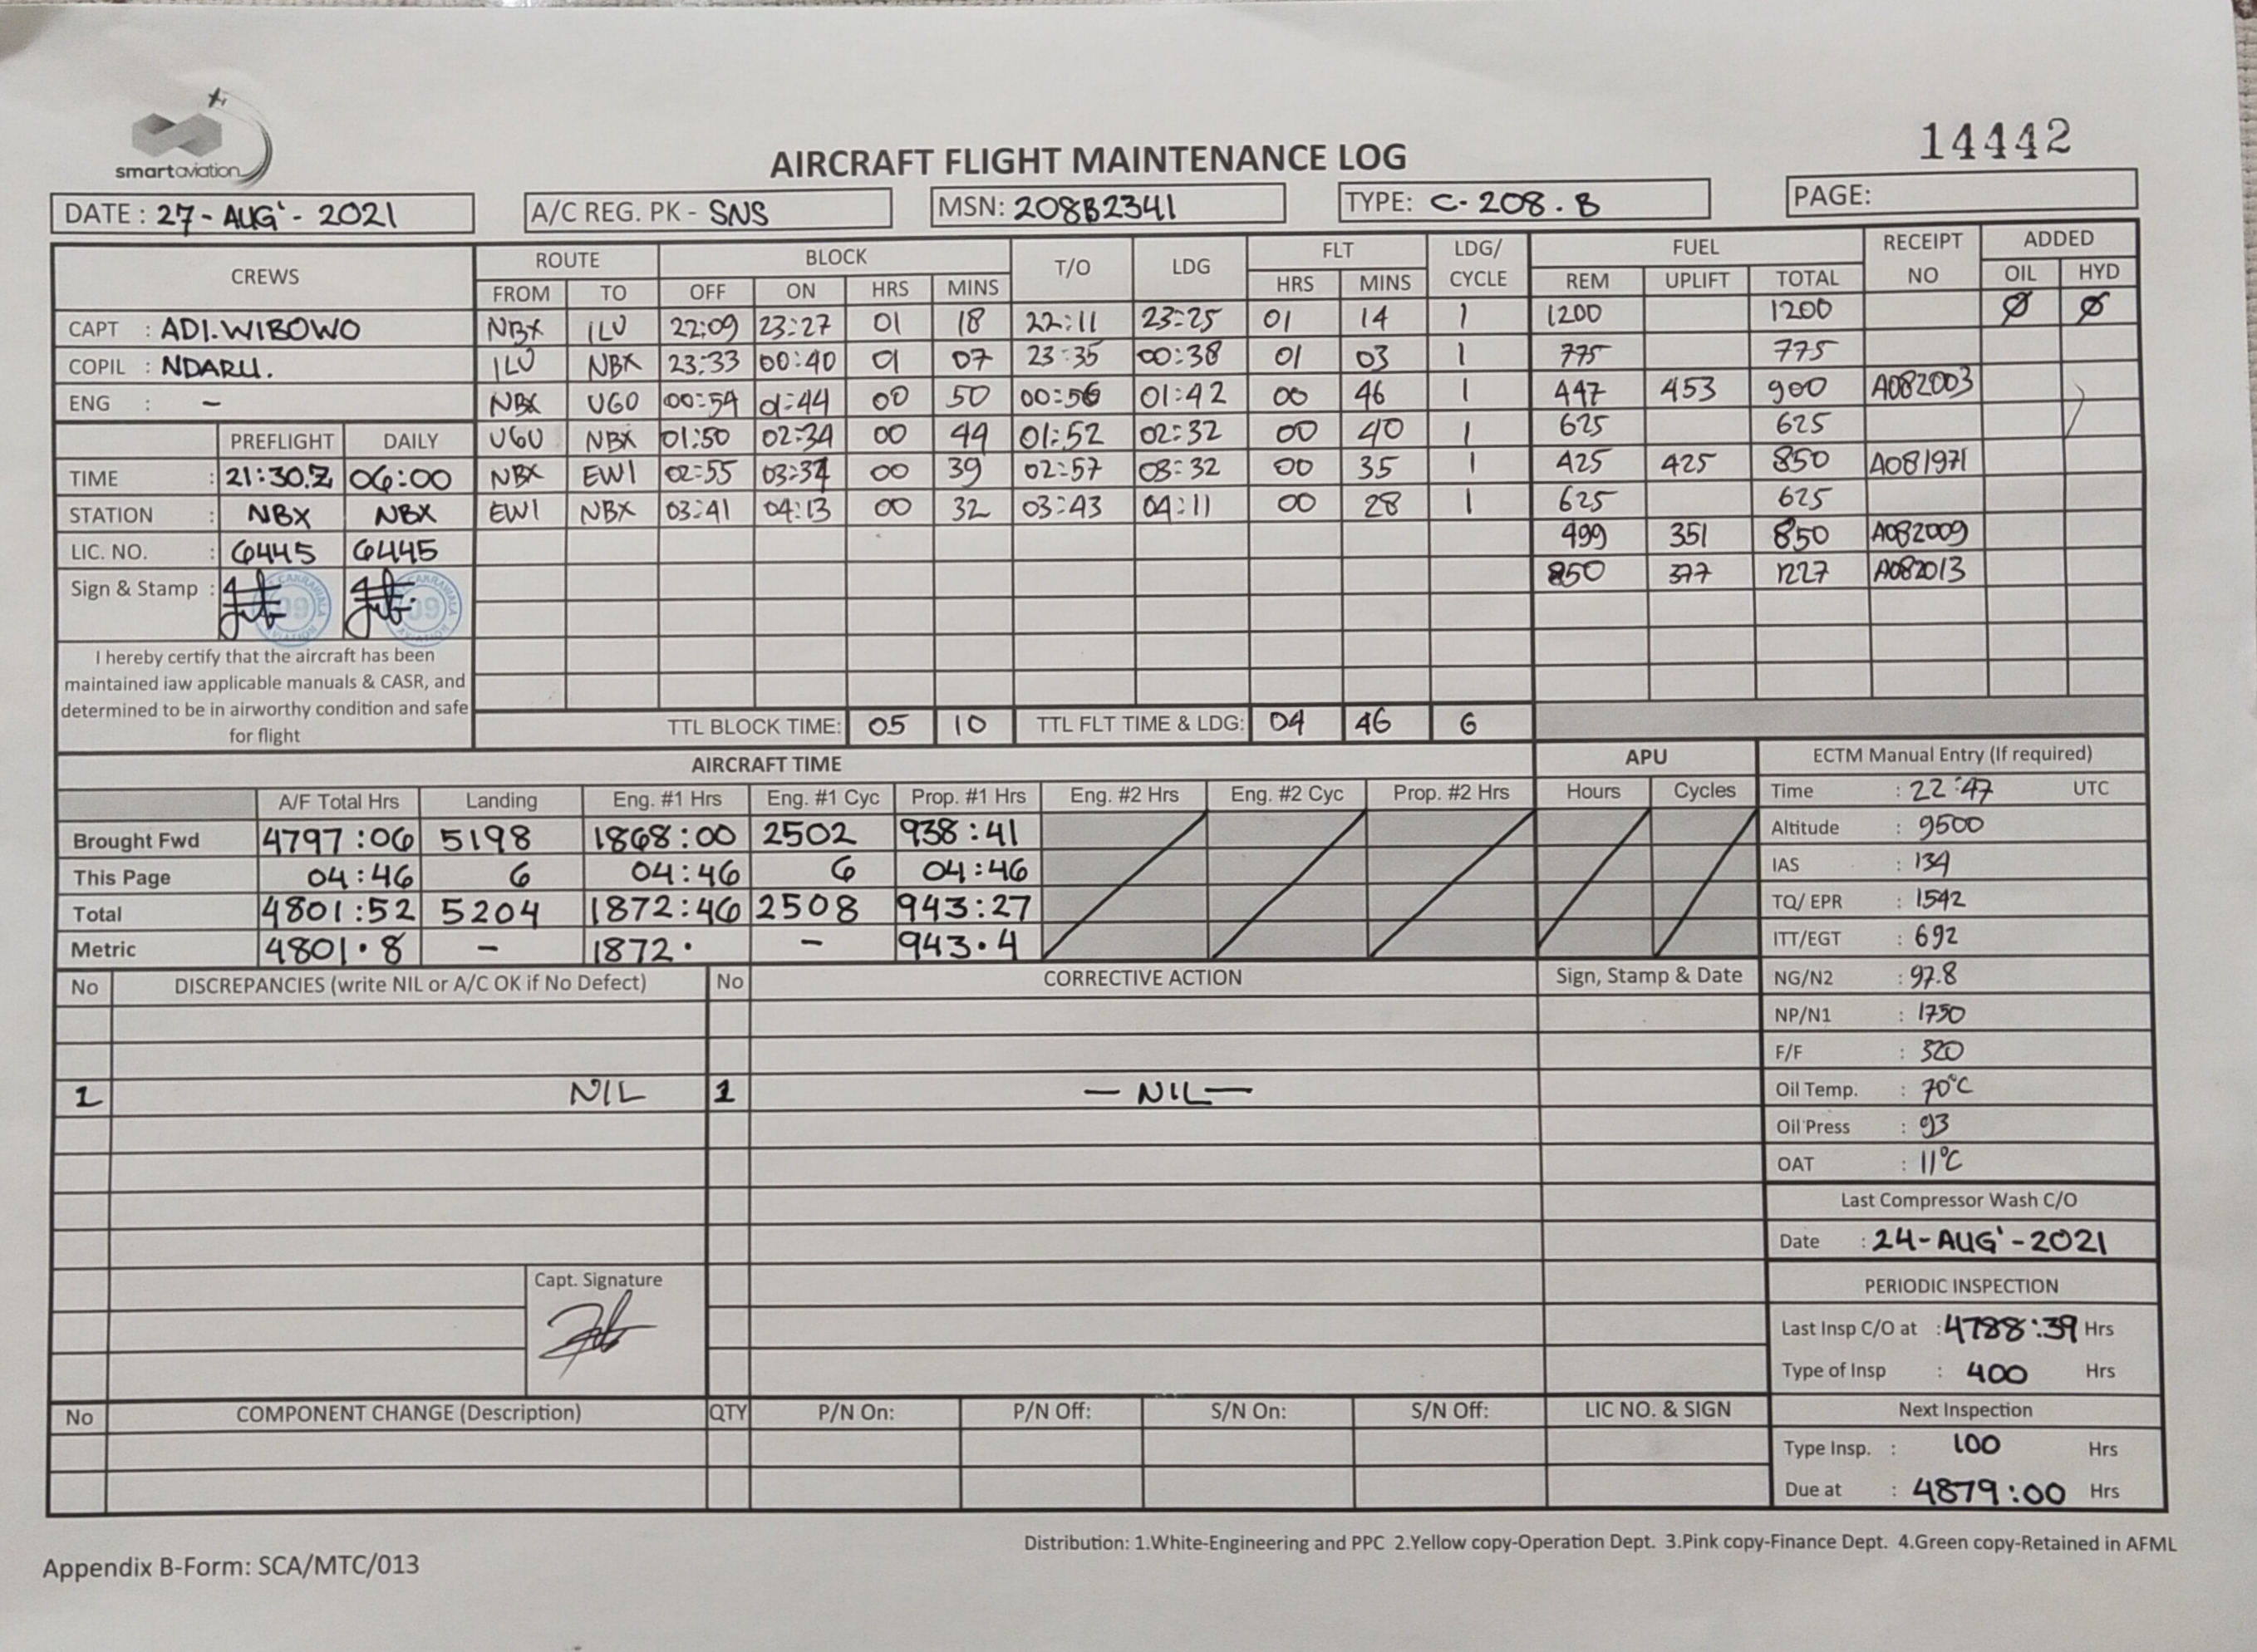 smart aviation
14442
AIRCRAFT FLIGHT MAINTENANCE LOG
DATE : 27- AUG' - 2021 A/C REG. PK - SNS MSN: 208B2341 TYPE: C-208.B PAGE:
CREWS ROUTE BLOCK T/O LDG FLT LDG/ CYCLE FUEL RECEIPT NO ADDED
FROM TO OFF ON HRS MINS HRS MINS REM UPLIFT TOTAL OIL HYD
CAPT : ADI.WIBOWO NBX ILU 22:09 23:27 01 18 22:11 23:25 01 14 1 1200 1200 Ø Ø
COPIL : NDARU. ILU NBX 23:33 00:40 01 07 23:35 00:38 01 03 1 775 775
ENG : - NBX UGO 00:54 01:44 00 50 00:56 01:42 00 46 1 447 453 900 A082003
PREFLIGHT DAILY UGU NBX 01:50 02:34 00 44 01:52 02:32 00 40 1 625 625
TIME : 21:30.Z 06:00 NBX EWI 02:55 03:34 00 39 02:57 03:32 00 35 1 425 425 850 A081971
STATION : NBX NBX EWI NBX 03:41 04:13 00 32 03:43 04:11 00 28 1 625 625
LIC. NO. : 6445 6445 499 351 850 A082009
Sign & Stamp : 850 377 1227 A082013
CAKRAWALA AVIATION 09 CAKRAWALA AVIATION 09
I hereby certify that the aircraft has been
maintained iaw applicable manuals & CASR, and
determined to be in airworthy condition and safe
for flight
TTL BLOCK TIME: 05 10 TTL FLT TIME & LDG: 04 46 6
AIRCRAFT TIME APU ECTM Manual Entry (If required)
A/F Total Hrs Landing Eng. #1 Hrs Eng. #1 Cyc Prop. #1 Hrs Eng. #2 Hrs Eng. #2 Cyc Prop. #2 Hrs Hours Cycles Time : 22:47 UTC
Brought Fwd 4797:06 5198 1868:00 2502 938:41 Altitude : 9500
This Page 04:46 6 04:46 6 04:46 IAS : 134
Total 4801:52 5204 1872:46 2508 943:27 TQ/ EPR : 1542
Metric 4801.8 - 1872. - 943.4 ITT/EGT : 692
No DISCREPANCIES (write NIL or A/C OK if No Defect) No CORRECTIVE ACTION Sign, Stamp & Date NG/N2 : 97.8
NP/N1 : 1750
F/F : 320
1 NIL 1 — NIL — Oil Temp. : 70°C
Oil Press : 93
OAT : 11°C
Last Compressor Wash C/O
Date : 24-AUG'-2021
Capt. Signature PERIODIC INSPECTION
Last Insp C/O at : 4788:39 Hrs
Type of Insp : 400 Hrs
No COMPONENT CHANGE (Description) QTY P/N On: P/N Off: S/N On: S/N Off: LIC NO. & SIGN Next Inspection
Type Insp. : 100 Hrs
Due at : 4879:00 Hrs
Distribution: 1.White-Engineering and PPC 2.Yellow copy-Operation Dept. 3.Pink copy-Finance Dept. 4.Green copy-Retained in AFML
Appendix B-Form: SCA/MTC/013